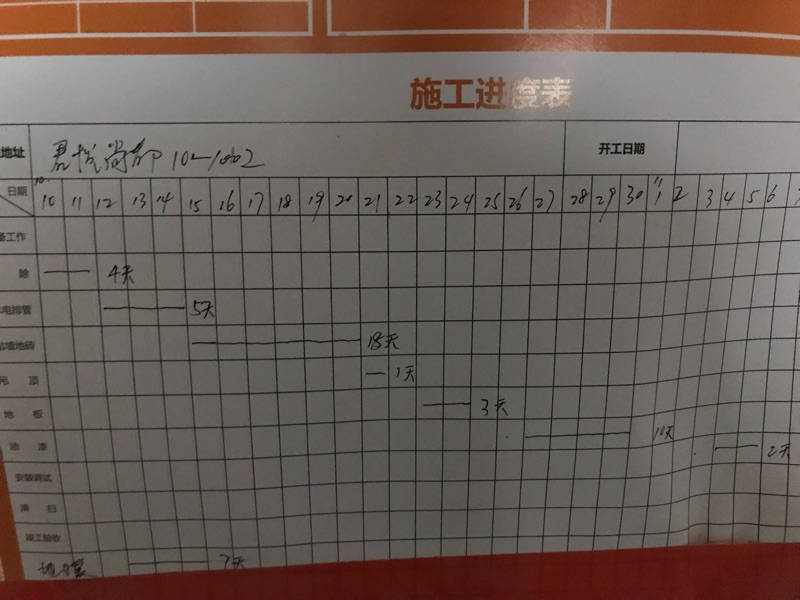 施工进度表
地址 尚都 10-1002 开工日期
日期 10 10 11 12 13 14 15 16 17 18 19 20 21 22 23 24 25 26 27 28 29 30 11 1 2 3 4 5 6 7
备工作
除 4天
电排管 5天
贴墙地砖 18天
吊顶 1天
地板 3天
油漆 10天 2天
安装调试
清扫
竣工验收
地暖 7天